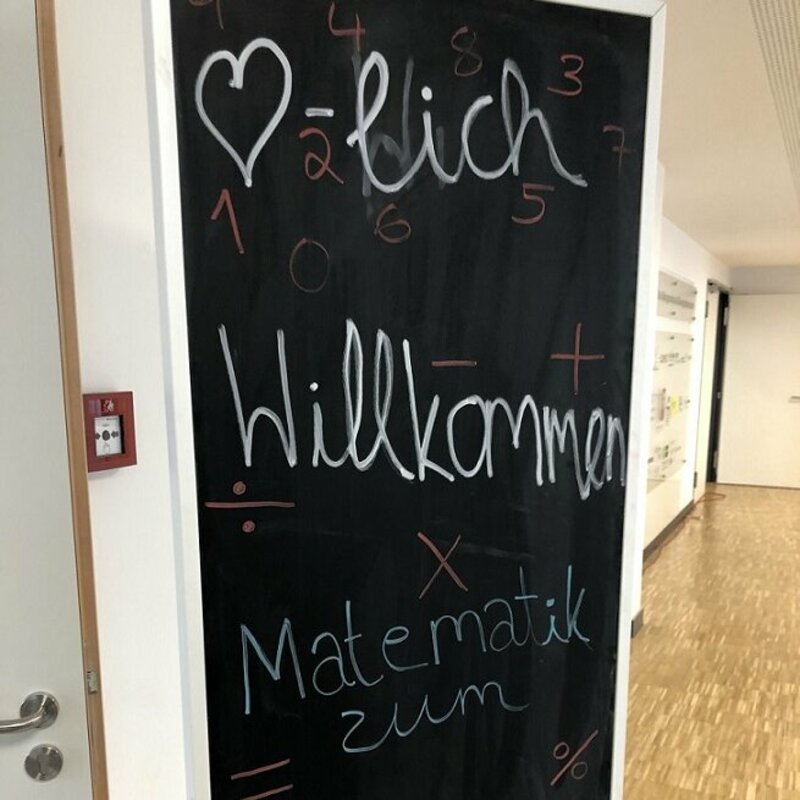 9 4 8 3
♡-lich
2 7
1 6 5
0
- +
Willkommen
÷
x
Matematik
zum
= %